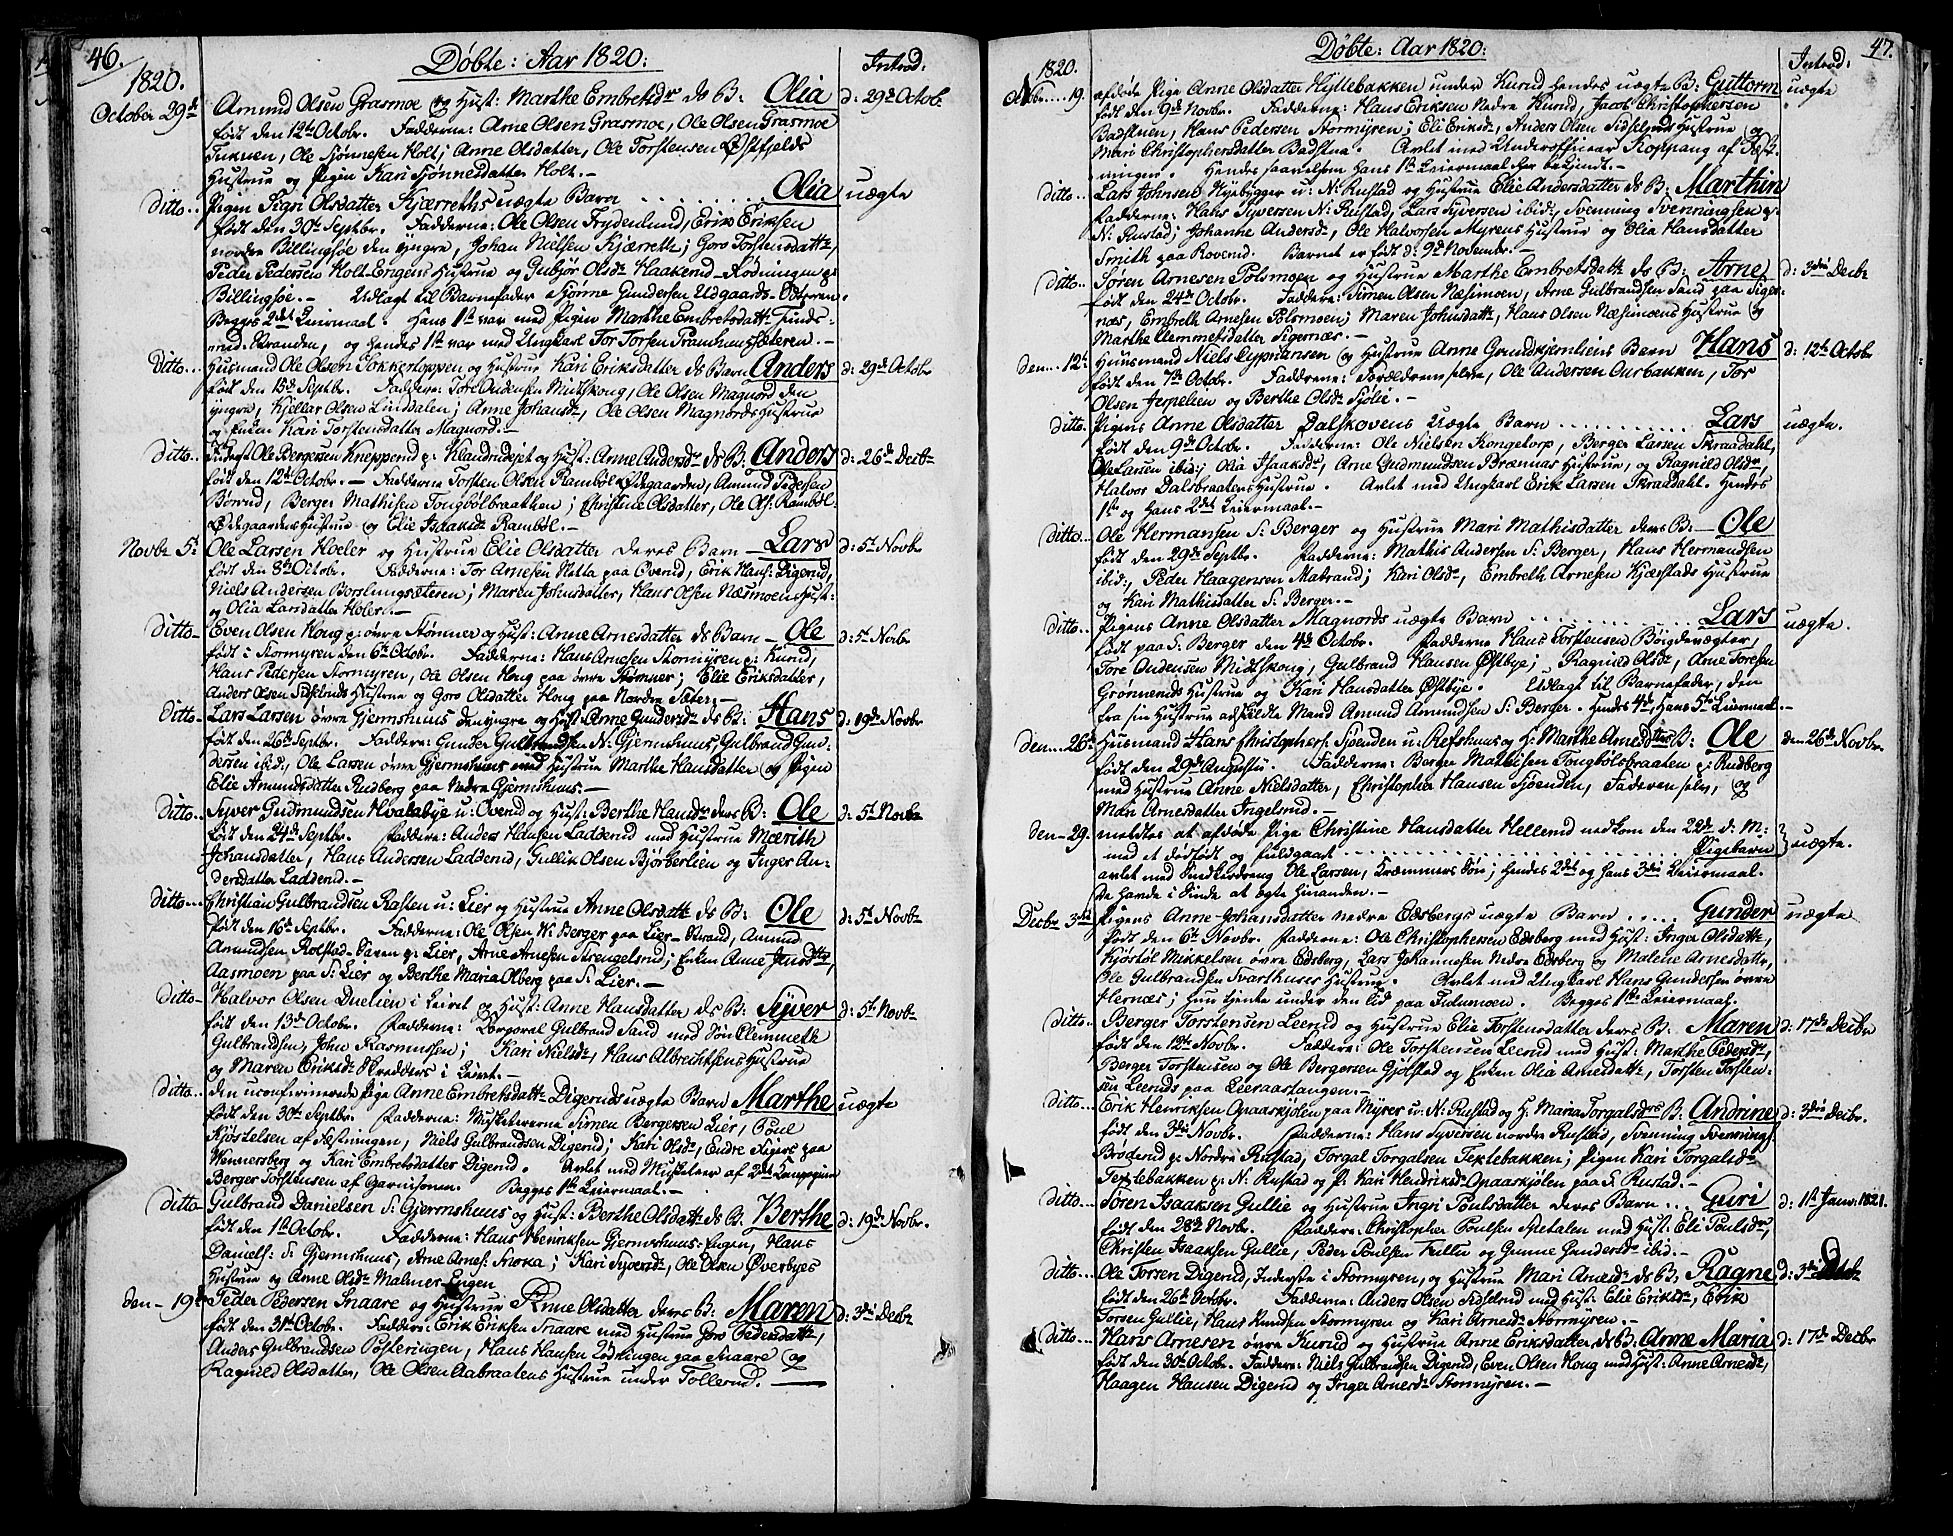 46.
Døbte: Aar 1820:
Introd:
1820.
October 29de Amund Olsen Grasmoe og Hust: Marthe Embretsdr ds B: Olia d: 29de Octobr
født den 12te Octobr. Fadderne: Arne Olsen Grasmoe, Ole Olsen Grasmoe
Tuknen, Ole Sjønnesen Holt; Anne Olsdatter, Ole Torstensen Østfjelds
Hustrue og Pigen Kari Sjønnesdatter Holt.-
Ditto.. Pigen Sigri Olsdatter Kjærreths uægte Barn ........ Olia uægte
født den 30te Septbr. Fadderne: Ole Olsen Frydenlund, Erik Eriksen
nordre Billingsøe den yngre, Johan Nielsen Kjærreth; Goro Torstensdattr,
Peder Pedersen Holt-Engens Hustrue og Gubjør Olsdr Haakerud-Rødningen p:
Billingsøe.- Udlagt til Barnefader Sjønne Gundersen Udgaards-Østeren.
Begges 2det Leiermaal. Hans 1ste var med Pigen Marthe Embretsdattr Tinds-
rud-Stranden, og hendes 1ste var med Ungkarl Tor Torsen Prammensæteren.-
Ditto.. Husmand Ole Olsen Sokkertoppen og Hustrue Kari Eriksdatter ds Barn Anders d: 29de Octobr
født den 13de Septbr. Fadderne: Tore Andersen Midtskoug, Ole Olsen Magnord den
yngre, Kjellar Olsen Linddalen; Anne Johansdr, Ole Olsen Magnords Hustrue
og Enken Kari Torstensdatter Magnord.-
Ditto.. Ole Bergersen Kneppen p: Klaudrudejet og Hust: Anne Andersdr ds B: Anders d: 26de Decbr
født den 12te Octobr.- Fadderne Torsten Olsen Rambøl Ødegaarden, Amund Pedersen
Børrud, Berger Mathisen Tougbølbraathen; Christine Olsdatter, Ole Ols: Rambøl
Ødegaardens Hustrue og Elie Isaaksdr Rambøl.-
Novbr 5: Ole Larsen Hoeler og Hustrue Elie Olsdatter deres Barn - Lars d: 5te Novbr
født den 8de Octobr. Fadderne: Tor Arnesen Netta paa Øverud, Erik Hans: Digerud,
Niels Andersen Borslungsæteren; Maren Johnsdatter, Hans Olsen Næsmoens Hust:
og Olia Larsdatter Holer.-
Ditto - Even Olsen Houg p: øvre Stømner og Hust: Anne Arnesdatter ds Barn - Ole d: 5te Novbr
født i Stormyren den 6te Octobr. Fadderne: Hans Arnesen Stormyren p: Kurud,
Hans Pedersen Stormyren, Ole Olsen Houg paa øvre Stømner; Elie Eriksdatter,
Anders Olsen Sidselruds Hustrue og Goro Olsdatter Houg paa Nordre Sæter.-
Ditto - Lars Larsen øvre Gjermshuus den yngre og Hust: Anne Gundersdr ds B: Hans d: 19de Novbr
født den 26de Septbr. Faddere: Gunder Gulbrandsen N: Gjermshuus, Gulbrand Gun-
dersen ibid:, Ole Larsen øvre Gjermshuus med Hustrue Marthe Hansdatter og Pigen
Elie Amundsdatter Rudberg paa Nedre Gjermshuus.-
Ditto.. Syver Gudmundsen Hvalebye u: Øverud og Hust: Berthe Hansdr deres B: Ole d: 5te Novbr
født den 24de Septbr. Faddere: Anders Hansen Ladderud med Hustrue Mærith
Johansdatter, Hans Andersen Ladderud, Gullik Olsen Bjørberlien og Inger An-
dersdatter Ladderud.-
Ditto... Christian Gulbrandsen Rasten u: Lier og Hustrue Anne Olsdattr ds B: Ole d: 5te Novbr
født den 16de Septbr. Fadderne: Ole Olsen W. Berger paa Lier-Strand, Amund
Amundsen Rolstad-Damm p: Lier, Arne Arnesen Strengelsrud; Enken Anne Jensdttr
Aasmoen paa S: Lier og Berthe Maria Olberg paa S: Lier.-
Ditto - Halvor Olsen Duelien i Leiret og Hust: Anne Hansdatter ds B: Syver d: 5te Novbr
født den 13de Octobr. Fadderne: Corporal Gulbrand Sand med Søn Clemmeth
Gulbrandsen, John Rasmussen; Kari Nielsdr, Hans Albrechtsens Hustrue
og Maren Eriksdr Skredders i Leiret.-
Ditto - den uconfirmerede Pige Anne Embretsdattr Digeruds uægte Barn Marthe uægte
født den 30te Septbr. Fadderne: Musketererne Simen Bergersen Lier, Poul
Kjøstelsen af Festningen, Niels Gulbrandsen Digerud; Kari Olsdr, Endre Siger paa
Wennersberg og Kari Embretsdatter Digerud. Avlet med Musketeer af 2det Compagnie
Berger Torstensen af Garnisonen. Begges 1ste Leiermaal.-
Ditto - Gulbrand Danielsen S: Gjermshuus og Hust: Berthe Olsdattr ds B: Berthe d: 19de Novbr.
født den 1ste Octobr. Fadderne: Hans Henriksen Gjermshuus-Eugen, Hans
Daniels: S: Gjermshuus, Arne Arnes: Snoka; Kari Syversdr, Ole Olsen Øverbyes
Hustrue og Anne Olsdr Malmer-Engen
den - 19de Peder Pedersen Snaare og Hustrue Anne Olsdatter deres B: Maren d: 3die Decbr
født den 31te Octobr. Faddere: Erik Eriksen Snaare med Hustrue Goro Pedersdattr,
Anders Gulbrandsen Posteringen, Hans Hansen Lødningen paa Snaare og
Ragnild Olsdatter, Ole Olsen Aabraatens Hustrue under Tollerud.-
47.
Døbte: Aar 1820:
Introd:
1820.
Novbr....19. afløde Pige Anne Olsdatter Hyttebakken under Kurud hendes uægte B: Guttorm uægte
født den 9de Novbr. Fadderne: Hans Eriksen Nedre Kurud, Jacob Christophersen
Badstuen, Hans Pedersen Stormyren; Eli Eriksdr, Anders Olsen Sidselruds Hustrue og
Mari Christophersdatter Badstua. Avlet med Underofficeer Koppang af Fæst-
ningen. Hendes saavelsom Hans 1ste Leiermaal bekjendt.-
Ditto... Lars Johnsen Nyebygger u: N: Rustad og Hustrue Elie Andersdatter ds B: Marthin
Fadderne: Hans Syversen N: Rustad, Lars Syversen ibid:, Svenning Svenningsen p:
N: Rustad; Johanne Andersdr, Ole Halvorsen Myrens Hustrue og Olia Hansdatter
Smith paa Roverud. Barnet er født d: 9de Novembr.-
Ditto... Søren Arnesen Polsmoen og Hustrue Marthe Embretsdattr ds B: Arne d: 3die Decbr
født den 24de Octobr. Faddere: Simen Olsen Næsimoen, Arne Gulbrandsen Sand paa Siger-
næs, Embreth Arnesen Polsmoen; Maren Johnsdattr, Hans Olsen Næsimoens Hustrue og
Marthe Clemmetsdatter Sigernæs.-
den...12te Huusmand Niels Cyprianson og Hustrue Anne Grundskjernliens Barn Hans d: 12te Octobr
født den 7de Octobr. Fadderne: Forældrene selve, Ole Andersen Aurbakken, Tor
Olsen Jerpelien og Berthe Olsdr Sjølie.-
Ditto. Pigens Anne Olsdatter Dalskovens Uægte Barn ........... Lars uægte.
født den 9de Octobr. Fadderne: Ole Nielsen Kongetorp, Berger Larsen Skraadahl,
Ole Larsen ibid:; Olia Isaaksdr, Arne Gudmundsen Brænnas Hustrue, og Ragnild Olsdr,
Halvor Dalsbraatens Hustrue. Avlet med Ungkarl Erik Larsen Skraadahl. Hendes
1ste og Hans 2det Leiermaal.-
Ditto... Ole Hermansen S: Berger og Hustrue Mari Mathisdatter deres B: - Ole
født den 29de Septbr. Fadderne: Mathis Andersen S: Berger, Hans Hermandsen
ibid:, Peder Haagensen Matrand; Kari Olsdr, Embreth Arnesen Kjærstads Hustrue
og Kari Mathisdatter S: Berger.-
Ditto... Pigens Anne Olsdatter Magnords uægte Barn ........... Lars uægte.
født paa S: Berger den 4de Octobr. Fadderne Hans Torstensen Bøigdevægter,
Tore Andersen Midtskoug, Gulbrand Hansen Østbye; Ragnild Olsdr, Arne Toresen
Grønneruds Hustrue og Kari Hansdatter Østbye. Udlagt til Barnefader, den
fra sin Hustrue adskildte Mand Amund Amundsen S: Berger. Hendes 4de, Hans 5te Leiermaal.-
den...26de Husmand Hans Christophers: Sjøenden u: Refshuus og H: Marthe Arnesdttrs B: Ole den 26de Novbr.
født den 29de Augusti. Fadderne: Berger Mathisen Tougbølsbraaten p: Rudberg
med Hustrue Anne Nielsdatter, Christopher Hansen Sjøenden, Faderen selv, og
Mari Arnesdatter Ingelsrud.-
den - 29. meldtes at afløde Pige Christine Hansdatter Hellerud nedkom den 22de d: M:
med et dødfødt og fuldgaaet ......................... Pigebarn uægte.
avlet med Inderdreng Ole Larsen, Kræmmers Søn; Hendes 2det og hans 3die Leiermaal.
De havde i Sinde at ægte hinanden.-
Decbr 3die Pigens Anne Johansdatter nedre Edsbergs uægte Barn ..... Gunder uægte
født den 6te Novbr. Fadderne: Ole Christophersen Edsberg med Hust: Inger Olsdattr,
Kjøstøl Mikkelsen øvre Edsberg, Lars Johannesen Nedre Edsberg og Malene Arnesdattr,
Ole Gulbrandsen Svarthuses Hustrue. Avlet med Ungkarl Hans Gundersen øvre
Hernæs; Hun tjente under den tid paa Tulumoen. Begges 1ste Leiermaal.
Ditto... Berger Torstensen Leerud og Hustrue Elie Torstensdatter deres B: Maren d: 17de Decbr
født den 12te Novbr. Faddere: Ole Torstensen Leerud med Hust: Marthe Pedersdr,
Berger Torstensen og Ole Bergersen Gjølstad og Enken Olia Arnesdattr, Torsten Torsten-
sen Leeruds paa Leeraastangen.-
Ditto... Erik Henriksen Opaaskjølen paa Myrer u: N: Rustad og H: Maria Torgalsdrs B: Andrine d: 3die Decbr.
født den 3die Novbr. Fadderne: Hans Syversen nordre Rustad, Svenning Svennings:
Brøderud p: Nordre Rustad, Torgal Torgalsen Textebakken; Pigen Kari Torgalsdr
Textebakken p: N: Rustad og P: Kari Hendriksdr Opaaskjølen paa S: Rustad.-
Ditto... Søren Isaaksen Gullie og Hustrue Ingri Poulsdatter deres Barn .. Guri d: 1ste Janv: 1821.
født den 28de Novbr. Faddere: Christopher Poulsen Spetalen med Hust: Eli Poulsdr,
Christen Isaaksen Gullie, Peder Poulsen Tullu og Gunne Gundersdr ibid:-
Ditto... Ole Torsen Digerud, Inderste i Stormyren, og Hustrue Mari Arnesdr ds B: Ragne, d: 3die Decbr
født den 26de Octobr. Fadderne: Anders Olsen Sidselrud med Hust: Elie Eriksdr, Erik
Torsen Gullie, Hans Knudsen Stormyren og Kari Arnesdr Stormyren.-
Ditto... Hans Arnesen øvre Kurud og Hustrue Anne Eriksdatter ds B: Anne Maria d: 17de Decbr
født den 30te Octobr. Faddere: Niels Gulbrandsen Digerud, Even Olsen Houg med Hust: Anne Arnesdr,
Haagen Hansen Digerud og Inger Arnesdr Stormyren.-